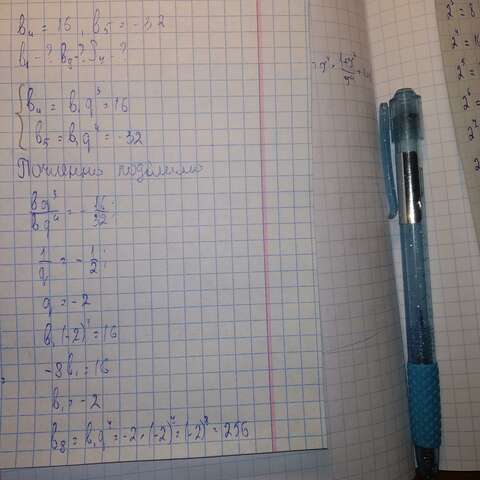 b₄ = 16, b₅ = -32
b₁ - ? b₈ - ? S₄ - ?
b₄ = b₁q³ = 16
b₅ = b₁q⁴ = -32
Почленно поделимо
b₁q³/b₁q⁴ = -16/32;
1/q = -1/2;
q = -2
b₁(-2)³ = 16
-8b₁ = 16
b₁ = -2
b₈ = b₁q⁷ = -2 · (-2)⁷ = (-2)⁸ = 256
2³ = 8
2⁴ = 16
2⁵ =
2⁶ =
2⁷
2